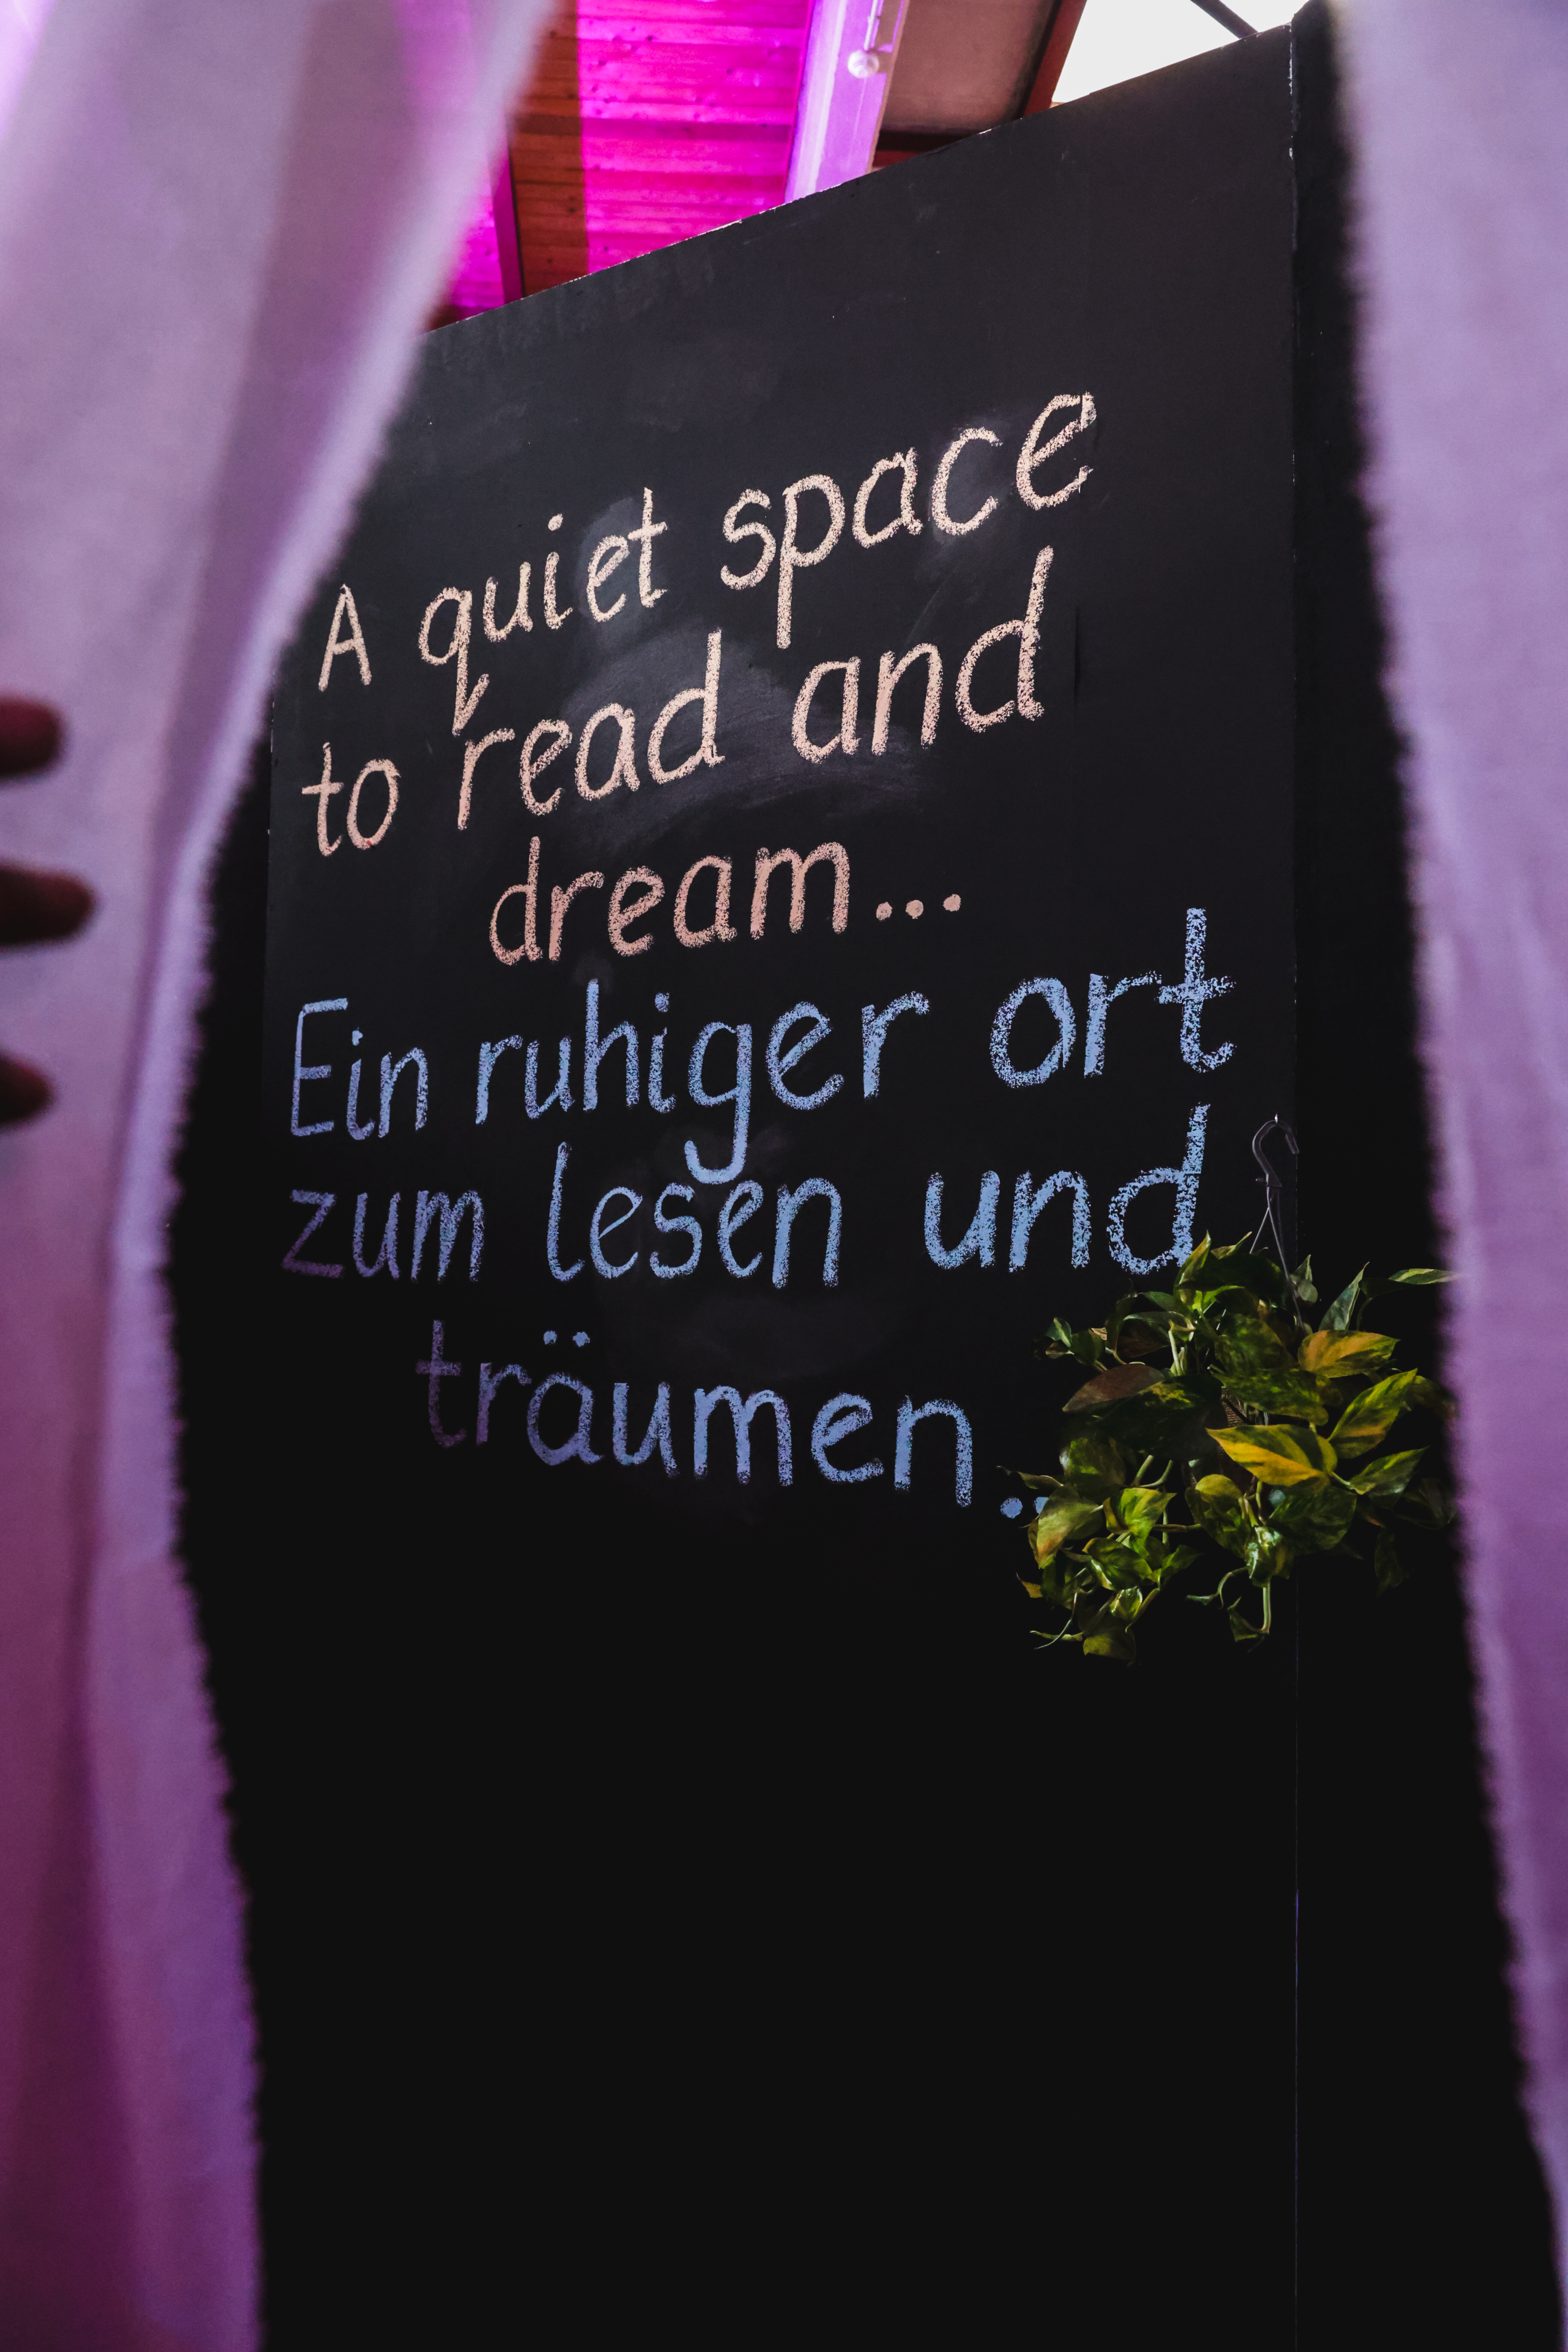 A quiet space
to read and
dream...
Ein ruhiger ort
zum lesen und
träumen..